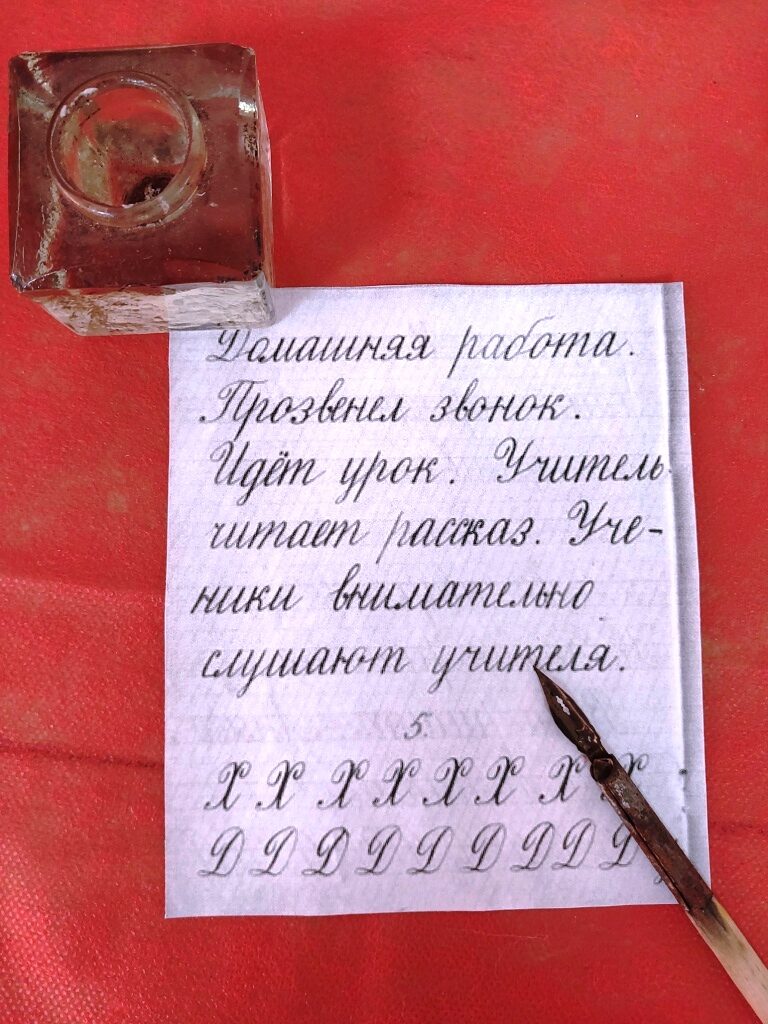 Домашняя работа.
Прозвенел звонок.
Идёт урок. Учитель
читает рассказ. Уче-
ники внимательно
слушают учителя.
5.
Х Х Х Х Х Х Х Х
Д Д Д Д Д Д Д Д Д